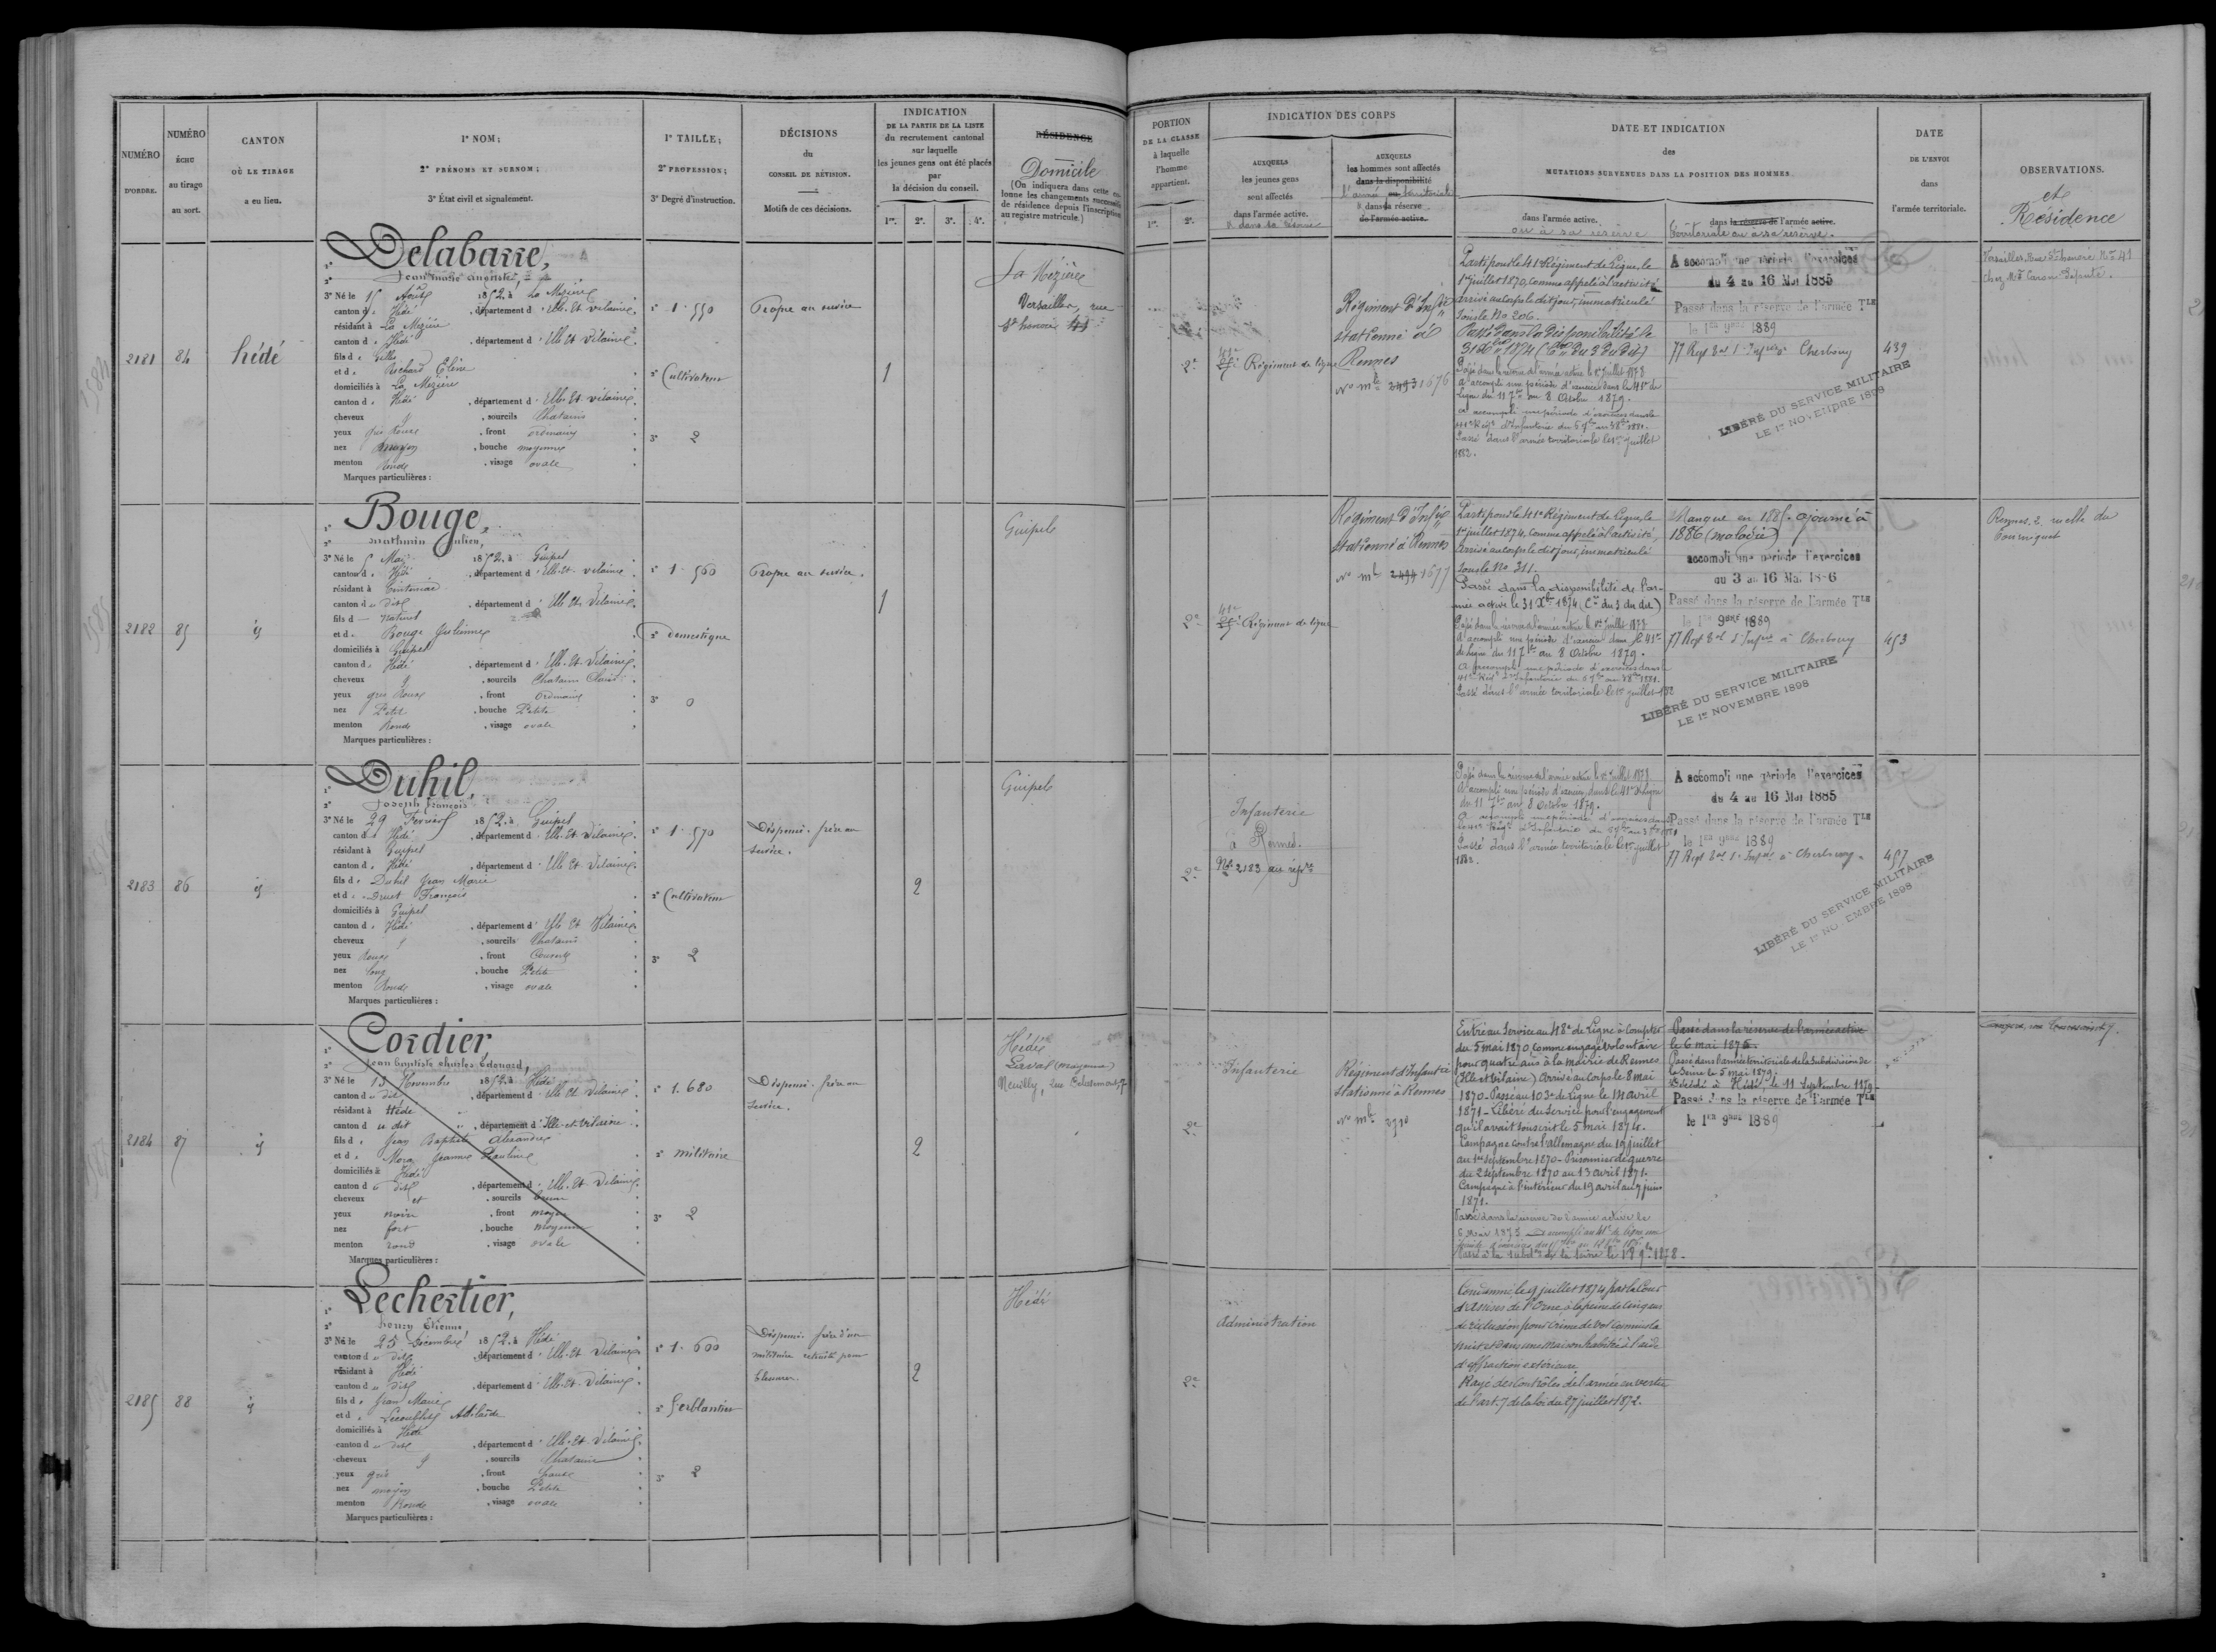 NUMÉRO
D'ORDRE.
NUMÉRO
ÉCHU
au tirage
au sort.
CANTON
OÙ LE TIRAGE
a eu lieu.
1° NOM;
2° PRÉNOMS ET SURNOM;
3° État civil et signalement.
1° TAILLE;
2° PROFESSION;
3° Degré d'instruction.
DÉCISIONS
du
CONSEIL DE RÉVISION.
Motifs de ces décisions.
INDICATION
DE LA PARTIE DE LA LISTE
du recrutement cantonal
sur laquelle
les jeunes gens ont été placés
par
la décision du conseil.
1re. 2e. 3e. 4e.
RÉSIDENCE
Domicile
(On indiquera dans cette colonne les changements successifs
de résidence depuis l'inscription
au registre matricule.)
PORTION
DE LA CLASSE
à laquelle
l'homme
appartient.
1re. 2e.
INDICATION DES CORPS
AUXQUELS
les jeunes gens
sont affectés
dans l'armée active.
AUXQUELS
les hommes sont affectés
dans la disponibilité
l'armée territoriale
dans la réserve
de l'armée active.
DATE ET INDICATION
des
MUTATIONS SURVENUES DANS LA POSITION DES HOMMES
dans l'armée active.
ou à sa réserve
dans la réserve de l'armée active.
Territoriale ou à sa réserve.
DATE
DE L'ENVOI
dans
l'armée territoriale.
OBSERVATIONS.
et
Résidence
2181
84
hédé
Delabarre,
Jean marie auguste,
3° Né le 15 Août 1852. à La Mézière
canton d. Hédé, département d'Ille-Et-vilaine.
résidant à La Mézière
canton d. Hédé, département d'Ille Et Vilaine.
fils d. Gilles
et d. Richard Hélène
domiciliés à La Mézière
canton d. Hédé, département d'Ille-Et-vilaine.
cheveux, sourcils Chatains
yeux gris Roux, front ordinaire
nez moyen, bouche moyenne
menton Rond, visage ovale
Marques particulières:
1° 1.550
2° Cultivateur
3° 2
Propre au service
1
La Mézière
Versailles, rue
St honoré
2e
41e Régiment de ligne
Régiment d'Infie
stationné à
Rennes
No mle 2493 1676
Parti pour le 41e Régiment de Ligne, le
arrivé au corps le dit jour, immatriculé
sous le No 206.
Passé dans la disponibilité le
Passé dans la réserve de l'armée active le 1er Juillet 1878
A accompli une période d'exercices dans le 41e de
Ligne du 11 7bre au 8 Octobre 1879.
Passé dans l'armée territoriale le 1er Juillet
1882.
A accompli une période d'exercices
du 4 au 16 Mai 1885
Passé dans la réserve de l'armée Tle
le 1er 9bre 1889
77 Regt Cherbourg
439
LIBÉRÉ DU SERVICE MILITAIRE
LE 1er NOVEMBRE 1898
Versailles, Rue St honoré No 41
2182
85
id
Bouge,
mathurin Julien,
3° Né le 5 Mai 1852. à Guipel
canton d. Hédé, département d'Ille-Et-vilaine
résidant à Tinténiac
canton d u dit, département d'Ille Et Vilaine.
fils d naturel
et d. Bouge Julienne
domiciliés à Guipel
canton d. Hédé, département d'Ille-Et-Vilaine.
cheveux, sourcils Chatains Clairs
yeux gris Roux, front Ordinaire
nez Petit, bouche Petite
menton Rond, visage ovale
Marques particulières:
1° 1.560
2° domestique
3° 0
Propre au service.
1
Guipel
2e
41e Régiment de ligne
Régiment d'Infie
stationné à Rennes
No mle 2494 1677
Parti pour le 41e Régiment de Ligne, le
1er juillet 1874, comme appelé à l'activité,
arrivé au corps le dit jour, immatriculé
sous le No 311.
Passé dans la disponibilité de l'armée
active le 31 Xbre 1874 (Cre du 3 du dit)
Passé dans la réserve de l'armée active le 1er Juillet 1878
A accompli une période d'exercices dans le 41e
de Ligne du 11 7bre au 8 Octobre 1879.
Passé dans l'armée territoriale le 1er juillet 1882
Manqué en 1885. ajourné à
1886 (maladie)
accompli une période d'exercices
du 3 au 16 Mai 1886
Passé dans la réserve de l'armée Tle
le 1er 9bre 1889
77 Regt à Cherbourg
453
LIBÉRÉ DU SERVICE MILITAIRE
LE 1er NOVEMBRE 1898
Rennes, 2, ruelle du
Tourniquet
2183
86
id
Duhil,
Joseph François
3° Né le 29 Février 1852. à Guipel
canton d. Hédé, département d'Ille-Et-Vilaine.
résidant à Guipel
canton d. Hédé, département d'Ille Et Vilaine.
fils d. Duhil Jean Marie
et d. Druet Françoise
domiciliés à Guipel
canton d. Hédé, département d'Ille Et Vilaine.
cheveux, sourcils Chatains
yeux Roux, front Couvert
nez long, bouche Petite
menton Rond, visage ovale
Marques particulières:
1° 1.570
2° Cultivateur
3° 2
Dispensé. frère au
service.
2
Guipel
2e
Infanterie
à Rennes.
No 2183 au répre
Passé dans la réserve de l'armée active le 1er Juillet 1878
A accompli une période d'exercices dans le 41e de Ligne
du 11 7bre au 8 Octobre 1879.
Passé dans l'armée territoriale le 1er juillet
1882.
A accompli une période d'exercices
du 4 au 16 Mai 1885
Passé dans la réserve de l'armée Tle
le 1er 9bre 1889
77 Regt à Cherbourg
457
LIBÉRÉ DU SERVICE MILITAIRE
LE 1er NOVEMBRE 1898
2184
87
id
Cordier,
Jean baptiste charles Edouard,
3° Né le 13 Novembre 1852. à Hédé
canton d u dit, département d'Ille Et Vilaine.
résidant à Hédé
canton d u dit, département d'Ille-et-Vilaine.
fils d. Jean Baptiste Alexandre
et d. Jeanne Pauline
domiciliés à Hédé
canton d u dit, département d'Ille-Et-Vilaine.
cheveux et, sourcils bruns
yeux noirs, front moyen
nez fort, bouche moyenne
menton rond, visage ovale
Marques particulières:
1° 1.680
2° militaire
3° 2
Dispensé. frère au
service.
2
Hédé
Laval (Mayenne)
Neuilly, rue
2e
Infanterie
Régiment d'Infanterie
stationné à Rennes
No mle
Entré au service au 48e de Ligne à compter
du 5 mai 1870 comme engagé volontaire
pour quatre ans à la mairie de Rennes
(Ille et Vilaine) Arrivé au Corps le 8 mai
1870 - Passé au 103e de Ligne le 11 avril
1871 - Libéré du service pour l'engagement
qu'il avait souscrit le 5 mai 1874.
Campagne contre l'Allemagne du 19 juillet
au 1er septembre 1870 - Prisonnier de guerre
du 2 septembre 1870 au 13 avril 1871.
Campagne à l'intérieur du 19 avril au 7 juin
1871.
Passé dans la réserve de l'armée active le
Passé dans la réserve de l'armée active
le 6 mai 1875.
Passé dans l'armée territoriale de la Subdivision de
la Seine le 5 mai 1879.
Décédé à Hédé le 11 Septembre 1879
Passé dans la réserve de l'armée Tle
le 1er 9bre 1889
2185
88
id
Lechertier,
henry Etienne
3° Né le 25 Décembre 1852. à Hédé
canton d u dit, département d'Ille-Et-Vilaine.
résidant à Hédé
canton d u dit, département d'Ille-Et-Vilaine.
fils d. Jean Marie
et d. Adélaïde
domiciliés à Hédé
canton d u dit, département d'Ille-Et-Vilaine.
cheveux, sourcils Chatains
yeux gris, front haut
nez moyen, bouche Petite
menton Rond, visage ovale
Marques particulières:
1° 1.600
2° Ferblantier
3° 2
Dispensé. frère d'un
militaire retraité pour
blessures.
2
Hédé
2e
Administration
Condamné le 9 juillet 1874 par la Cour
d'Assises de l'Orne à la peine de cinq ans
de réclusion pour crime de vol commis la
nuit et dans une maison habitée à l'aide
d'effraction extérieure
Rayé des Contrôles de l'armée en vertu
de l'art. 7 de la loi du 27 juillet 1872.